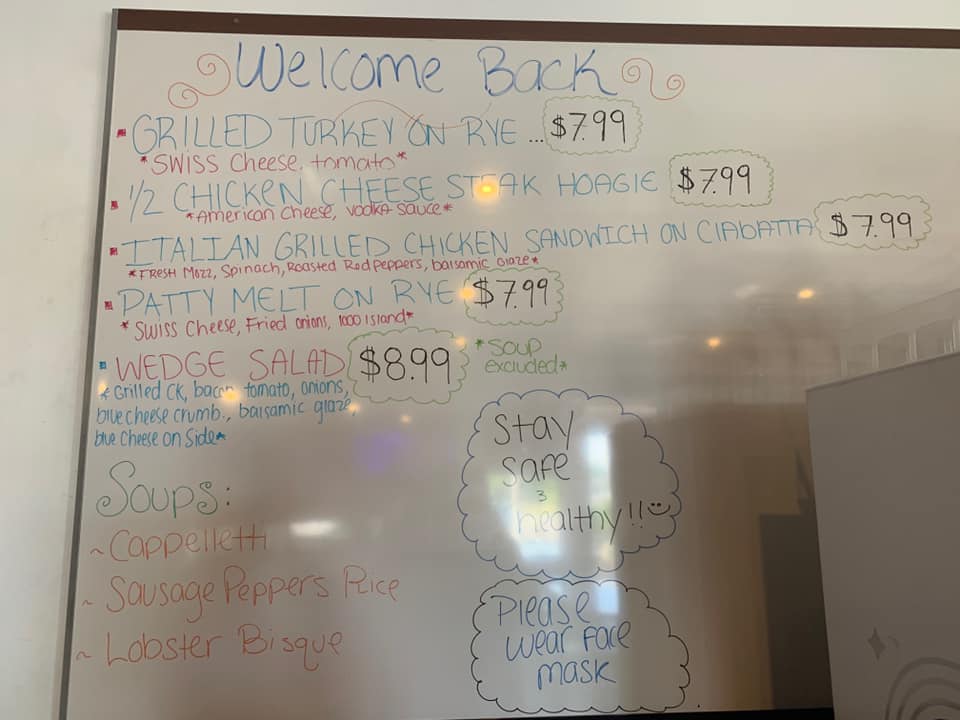 Welcome Back
GRILLED TURKEY ON RYE ... $7.99
*SWISS Cheese, tomato*
1/2 CHICKEN CHEESE STEAK HOAGIE $7.99
*American Cheese, vodka sauce*
ITALIAN GRILLED CHICKEN SANDWICH ON CIABATTA $7.99
*FRESH Mozz, Spinach, Roasted Red Peppers, balsamic Glaze*
PATTY MELT ON RYE $7.99
* Swiss Cheese, Fried onions, 1000 island*
WEDGE SALAD $8.99 *Soup
excluded*
* Grilled CK, bacon, tomato, onions,
blue cheese crumb., balsamic glaze,
blue cheese on side*
Soups:
~ Cappelletti
~ Sausage Peppers Rice
~ Lobster Bisque
Stay
safe
&
healthy!!
Please
wear face
mask